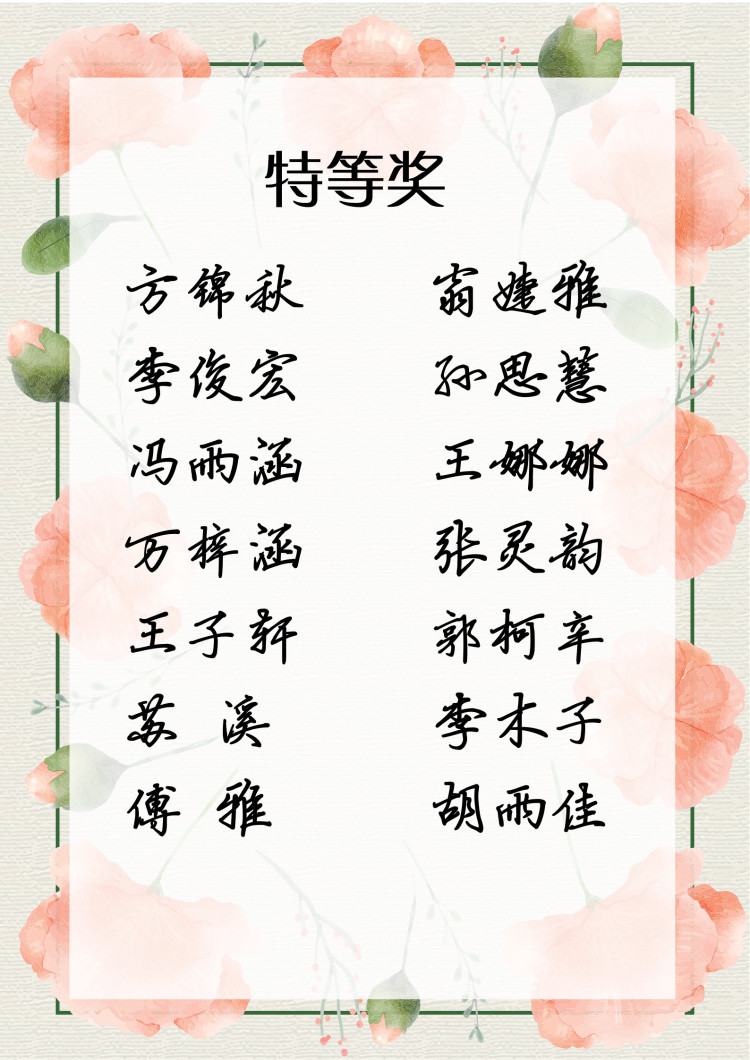 特等奖
方锦秋 翁婕雅
李俊宏 孙思慧
冯雨涵 王娜娜
万梓涵 张灵韵
王子轩 郭柯辛
苏 溪 李木子
傅 雅 胡雨佳